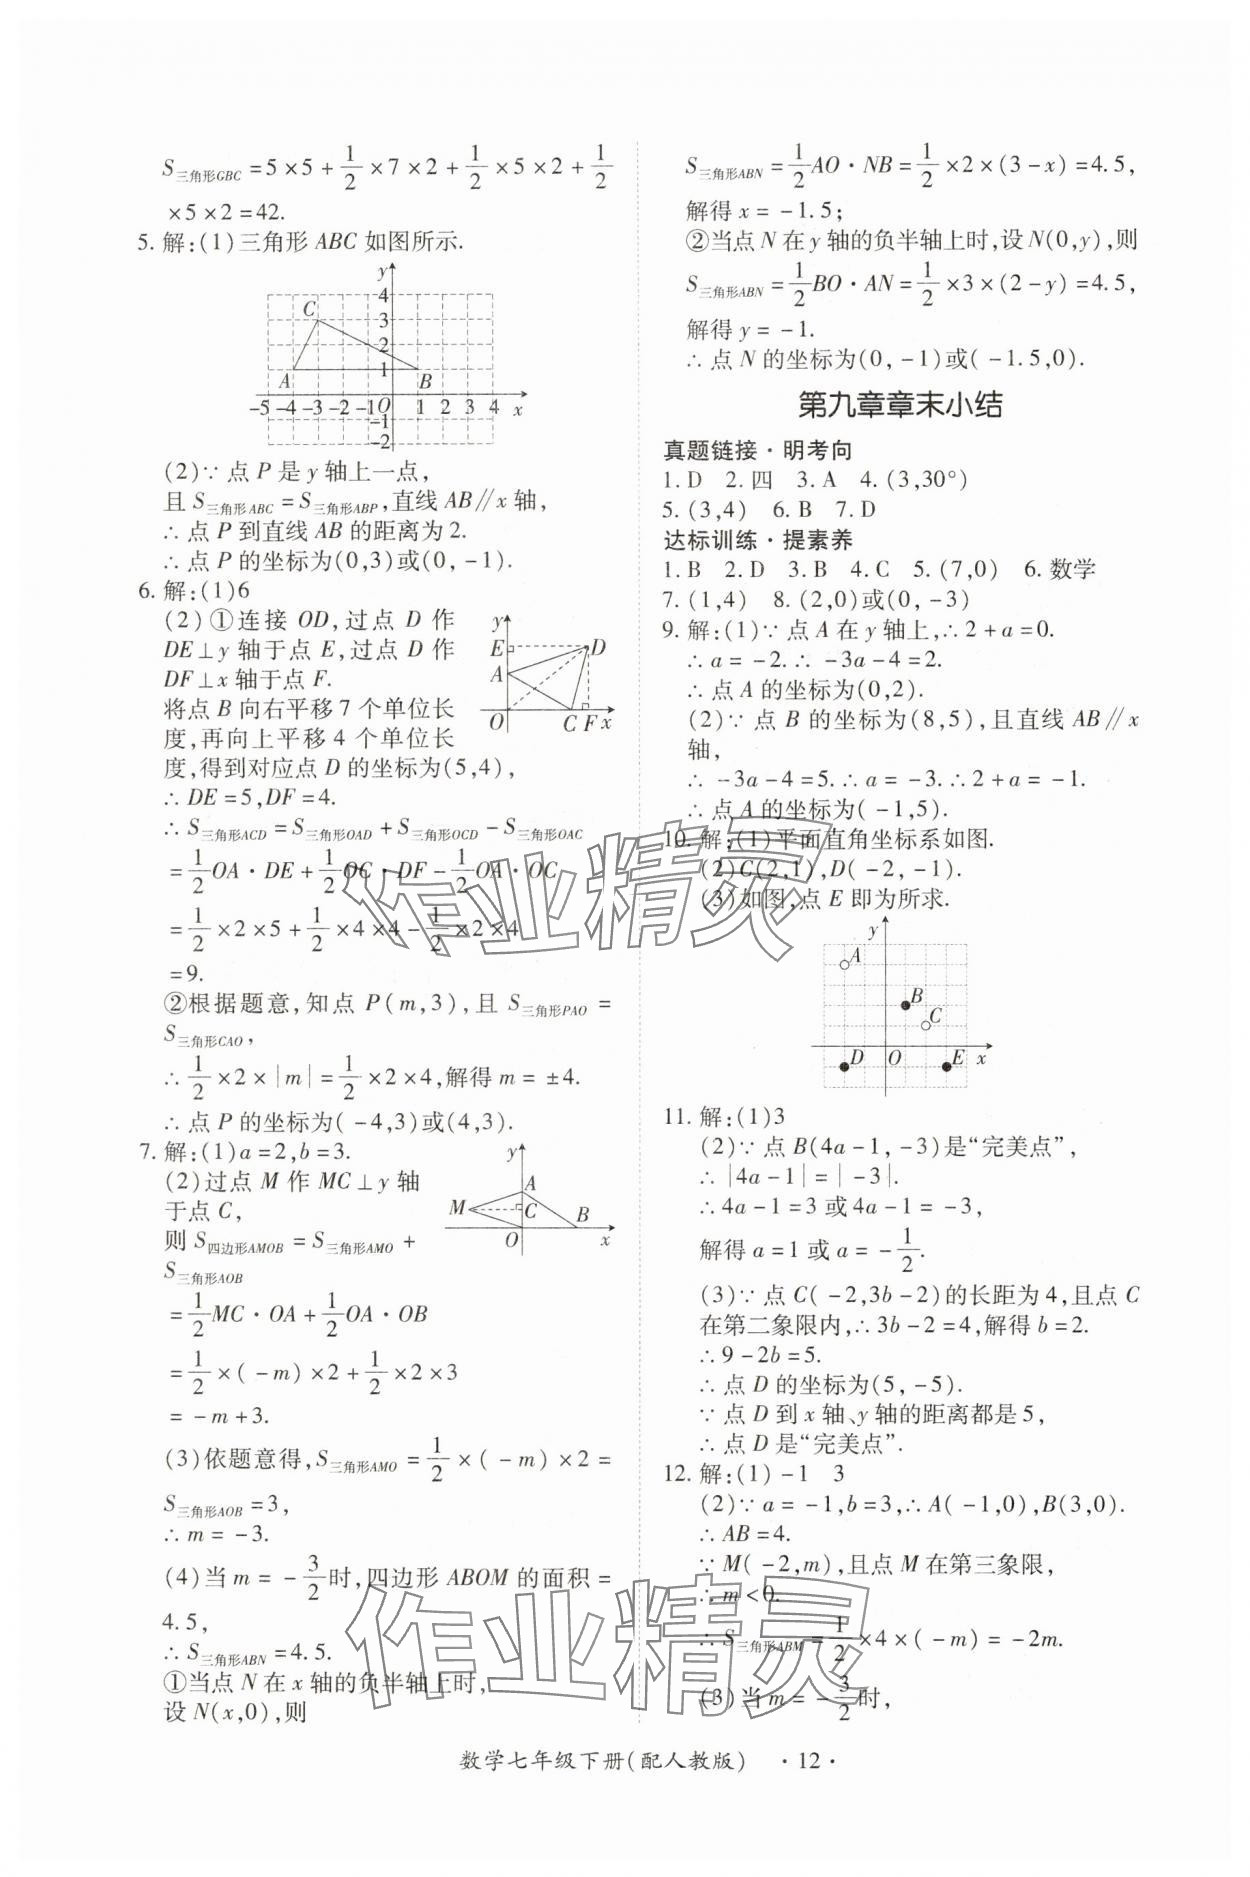 S三角形GBC = 5×5 + 1/2 ×7×2 + 1/2 ×5×2 + 1/2
×5×2 = 42.
5. 解:(1)三角形 ABC 如图所示.
y
4
C 3
2
A 1 B
-5 -4 -3 -2 -1 O 1 2 3 4 x
-1
-2
(2)∵ 点 P 是 y 轴上一点,
且 S三角形ABC = S三角形ABP,直线 AB∥x 轴,
∴ 点 P 到直线 AB 的距离为 2.
∴ 点 P 的坐标为(0,3)或(0,-1).
6. 解:(1)6
(2)①连接 OD,过点 D 作
DE⊥y 轴于点 E,过点 D 作
DF⊥x 轴于点 F.
将点 B 向右平移 7 个单位长
度,再向上平移 4 个单位长
度,得到对应点 D 的坐标为(5,4),
y
E D
A
O C F x
∴ DE = 5,DF = 4.
∴ S三角形ACD = S三角形OAD + S三角形OCD - S三角形OAC
= 1/2 OA·DE + 1/2 OC·DF - 1/2 OA·OC
= 1/2 ×2×5 + 1/2 ×4×4 - 1/2 ×2×4
= 9.
②根据题意,知点 P(m,3),且 S三角形PAO =
S三角形CAO,
∴ 1/2 ×2×|m| = 1/2 ×2×4,解得 m = ±4.
∴ 点 P 的坐标为(-4,3)或(4,3).
7. 解:(1)a = 2,b = 3.
(2)过点 M 作 MC⊥y 轴
于点 C,
则 S四边形AMOB = S三角形AMO +
S三角形AOB
y
A
M C B
O x
= 1/2 MC·OA + 1/2 OA·OB
= 1/2 ×(-m)×2 + 1/2 ×2×3
= -m + 3.
(3)依题意得,S三角形AMO = 1/2 ×(-m)×2 =
S三角形AOB = 3,
∴ m = -3.
(4)当 m = -3/2 时,四边形 ABOM 的面积 =
4.5,
∴ S三角形ABN = 4.5.
①当点 N 在 x 轴的负半轴上时,
设 N(x,0),则
S三角形ABN = 1/2 AO·NB = 1/2 ×2×(3-x) = 4.5,
解得 x = -1.5;
②当点 N 在 y 轴的负半轴上时,设 N(0,y),则
S三角形ABN = 1/2 BO·AN = 1/2 ×3×(2-y) = 4.5,
解得 y = -1.
∴ 点 N 的坐标为(0,-1)或(-1.5,0).
第九章章末小结
真题链接·明考向
1. D 2. 四 3. A 4. (3,30°)
5. (3,4) 6. B 7. D
达标训练·提素养
1. B 2. D 3. B 4. C 5. (7,0) 6. 数学
7. (1,4) 8. (2,0)或(0,-3)
9. 解:(1)∵ 点 A 在 y 轴上,∴ 2+a=0.
∴ a = -2. ∴ -3a-4=2.
∴ 点 A 的坐标为(0,2).
(2)∵ 点 B 的坐标为(8,5),且直线 AB∥x
轴,
∴ -3a-4=5. ∴ a = -3. ∴ 2+a = -1.
∴ 点 A 的坐标为(-1,5).
10. 解:(1)平面直角坐标系如图.
(2)C(2,1),D(-2,-1).
(3)如图,点 E 即为所求.
y
A
B
C
D O E x
11. 解:(1)3
(2)∵ 点 B(4a-1,-3)是“完美点”,
∴ |4a-1| = |-3|.
∴ 4a-1=3 或 4a-1=-3,
解得 a=1 或 a = -1/2.
(3)∵ 点 C(-2,3b-2)的长距为 4,且点 C
在第二象限内,∴ 3b-2=4,解得 b=2.
∴ 9-2b=5.
∴ 点 D 的坐标为(5,-5).
∵ 点 D 到 x 轴、y 轴的距离都是 5,
∴ 点 D 是“完美点”.
12. 解:(1)-1 3
(2)∵ a = -1,b=3,∴ A(-1,0),B(3,0).
∴ AB = 4.
∵ M(-2,m),且点 M 在第三象限,
∴ m < 0.
∴ S三角形ABM = 1/2 ×4×(-m) = -2m.
(3)当 m = -3/2 时,
数学七年级下册(配人教版) ·12·
作业精灵
作业精灵